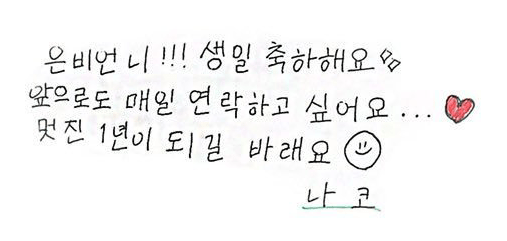 은비언니!!! 생일 축하해요
앞으로도 매일 연락하고 싶어요...
멋진 1년이 되길 바래요
나코